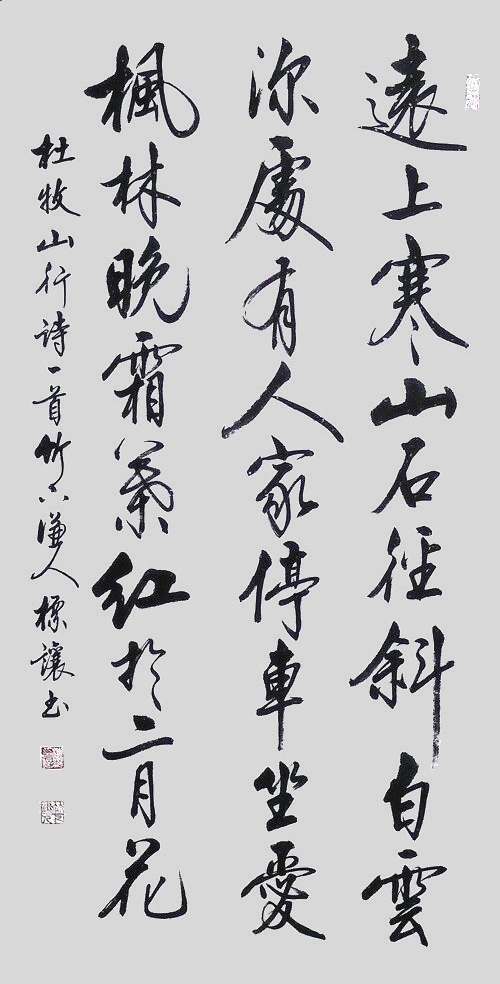 遠上寒山石徑斜白雲
深處有人家停車坐愛
楓林晚霜葉紅於二月花
杜牧山行詩一首竹下謙人標讓书